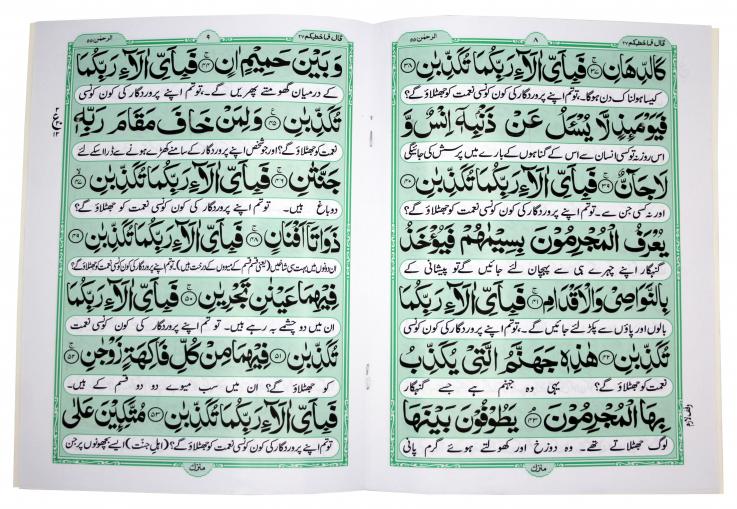 قال فما خطبكم ۲۷ ۸ الرحمٰن ۵۵
كَالدِّهَانِ ﴿۳۷﴾ فَبِاَىِّ اٰلَآءِ رَبِّكُمَا تُكَذِّبٰنِ ﴿۳۸﴾
کیسا ہولناک دن ہوگا۔ تو تم اپنے پروردگار کی کون کونسی نعمت کو جھٹلاؤ گے؟
فَيَوْمَئِذٍ لَّا يُسْئَلُ عَنْ ذَنْۢبِهٖٓ اِنْسٌ وَّ
اس روز نہ تو کسی انسان سے اس کے گناہوں کے بارے میں پرسش کی جائیگی
لَا جَآنٌّ ﴿۳۹﴾ فَبِاَىِّ اٰلَآءِ رَبِّكُمَا تُكَذِّبٰنِ ﴿۴۰﴾
اور نہ کسی جن سے۔ تو تم اپنے پروردگار کی کون کونسی نعمت کو جھٹلاؤ گے؟
يُعْرَفُ الْمُجْرِمُوْنَ بِسِيْمٰهُمْ فَيُؤْخَذُ
گنہگار اپنے چہرے ہی سے پہچان لئے جائیں گے تو پیشانی کے
بِالنَّوَاصِىْ وَالْاَقْدَامِ ﴿۴۱﴾ فَبِاَىِّ اٰلَآءِ رَبِّكُمَا
بالوں اور پاؤں سے پکڑ لئے جائیں گے۔ تو تم اپنے پروردگار کی کون کونسی
تُكَذِّبٰنِ ﴿۴۲﴾ هٰذِهٖ جَهَنَّمُ الَّتِىْ يُكَذِّبُ
نعمت کو جھٹلاؤ گے؟ یہی وہ جہنم ہے جسے گنہگار
بِهَا الْمُجْرِمُوْنَ ﴿۴۳﴾ يَطُوْفُوْنَ بَيْنَهَا
لوگ جھٹلاتے تھے۔ وہ دوزخ اور کھولتے ہوئے گرم پانی
وقف لازم
منزل
قال فما خطبكم ۲۷ ۹ الرحمٰن ۵۵
وَ بَيْنَ حَمِيْمٍ اٰنٍ ﴿۴۴﴾ فَبِاَىِّ اٰلَآءِ رَبِّكُمَا
کے درمیان گھومتے پھریں گے۔ تو تم اپنے پروردگار کی کون کونسی
تُكَذِّبٰنِ ﴿۴۵﴾ وَلِمَنْ خَافَ مَقَامَ رَبِّهٖ
نعمت کو جھٹلاؤ گے؟ اور جو شخص اپنے پروردگار کے سامنے کھڑے ہونے سے ڈرا اسکے لئے
جَنَّتٰنِ ﴿۴۶﴾ فَبِاَىِّ اٰلَآءِ رَبِّكُمَا تُكَذِّبٰنِ ﴿۴۷﴾
دو باغ ہیں۔ تو تم اپنے پروردگار کی کون کونسی نعمت کو جھٹلاؤ گے؟
ذَوَاتَآ اَفْنَانٍ ﴿۴۸﴾ فَبِاَىِّ اٰلَآءِ رَبِّكُمَا تُكَذِّبٰنِ ﴿۴۹﴾
ان دونوں میں بہت سی شاخیں (یعنی قسم قسم کے میووں کے درخت ہیں) تو تم اپنے پروردگار کی کون کونسی نعمت کو جھٹلاؤ گے؟
فِيْهِمَا عَيْنٰنِ تَجْرِيٰنِ ﴿۵۰﴾ فَبِاَىِّ اٰلَآءِ رَبِّكُمَا
ان میں دو چشمے بہہ رہے ہیں۔ تو تم اپنے پروردگار کی کون کونسی نعمت
تُكَذِّبٰنِ ﴿۵۱﴾ فِيْهِمَا مِنْ كُلِّ فَاكِهَةٍ زَوْجٰنِ ﴿۵۲﴾
کو جھٹلاؤ گے؟ ان میں سب میوے دو دو قسم کے ہیں۔
فَبِاَىِّ اٰلَآءِ رَبِّكُمَا تُكَذِّبٰنِ ﴿۵۳﴾ مُتَّكِئِيْنَ عَلٰى
تو تم اپنے پروردگار کی کون کونسی نعمت کو جھٹلاؤ گے؟ (اہل جنت) ایسے بچھونوں پر جن
منزل